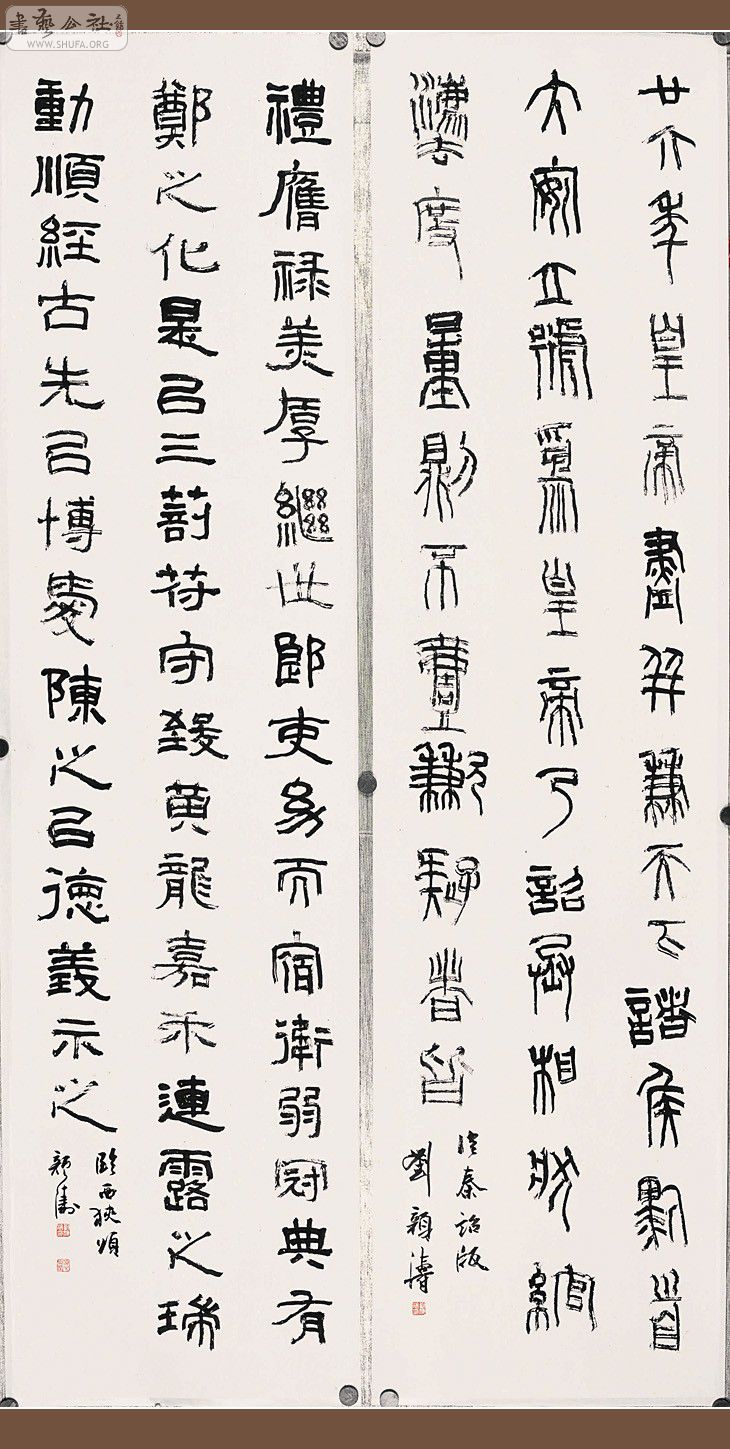 廿六年皇帝盡并兼天下諸侯黔首
大安立號為皇帝乃詔丞相狀綰
灋度量則不壹歉疑者皆
臨秦詔版
劉顏濤
禮膺祿美厚繼世郎吏幼而宿衛弱冠典有
鄭之化是㠯三剖苻守致黃龍嘉禾連露之瑞
動順經古先㠯博愛陳之㠯德義示之
臨西狹頌
顏濤
書藝公社
WWW.SHUFA.ORG